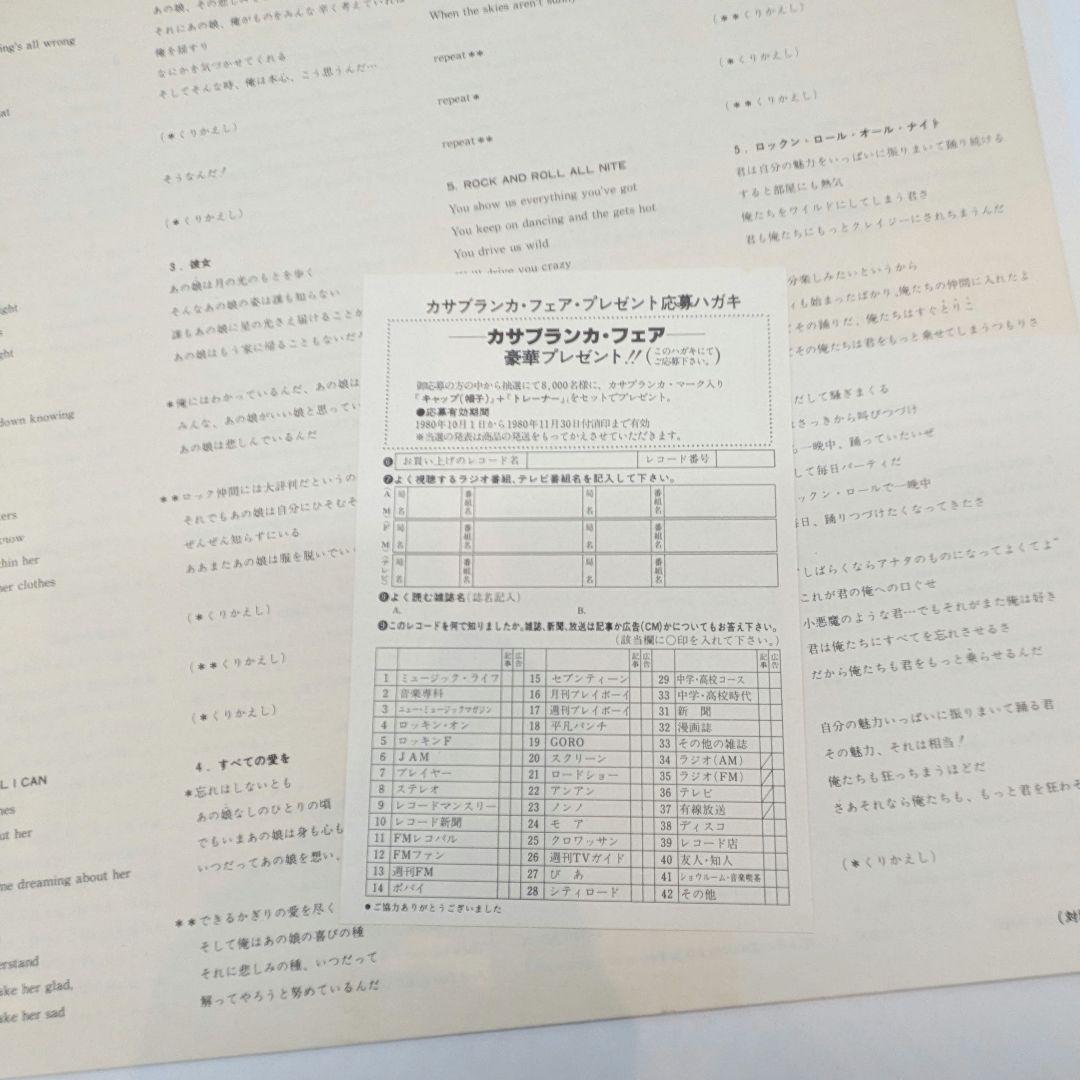 ing's all wrong
at
ight
s
ght
down knowing
ters
know
thin her
her clothes
L I CAN
nes
out her
me dreaming about her
erstand
ake her glad,
ake her sad
それにあの娘、俺がものをみんな辛く考えていれば
俺を揺すり
なにかを気づかせてくれる
そしてそんな時、俺は本心、こう思うんだ…
(*くりかえし)
そうなんだ!
(*くりかえし)
3. 彼女
あの娘は月の光のもとを歩く
そんなあの娘の姿は誰も知らない
誰もあの娘に星の光さえ届けることが
あの娘はもう家に帰ることもないだ
*俺にはわかっているんだ、あの娘は
みんな、あの娘がいい娘と思ってい
あの娘は悲しんでいるんだ
**ロック仲間には大評判だというの
それでもあの娘は自分にひそむそ
ぜんぜん知らずにいる
ああまたあの娘は服を脱いでい
(*くりかえし)
(**くりかえし)
(*くりかえし)
4. すべての愛を
*忘れはしないとも
あの娘なしのひとりの頃
でもいまあの娘は身も心も
いつだってあの娘を想い、
**できるかぎりの愛を尽く
そして俺はあの娘の喜びの種
それに悲しみの種、いつだって
解ってやろうと努めているんだ
When the skies aren't sunny
repeat**
repeat*
repeat**
5. ROCK AND ROLL ALL NITE
You show us everything you've got
You keep on dancing and the gets hot
You drive us wild
We'll drive you crazy
(**くりかえし)
(*くりかえし)
(**くりかえし)
5. ロックン・ロール・オール・ナイト
君は自分の魅力をいっぱいに振りまいて踊り続ける
すると部屋にも熱気
俺たちをワイルドにしてしまう君さ
君も俺たちにもっとクレイジーにされちまうんだ
分楽しみたいというから
ィも始まったばかり、俺たちの仲間に入れたよ
その踊りだ、俺たちはすぐとりこ
その俺たちは君をもっと乗せてしまうつもりさ
だして騒ぎまくる
さっきから叫びつづけ
一晩中、踊っていたいぜ
して毎日パーティだ
ックン・ロールで一晩中
毎日、踊りつづけたくなってきたさ
しばらくならアナタのものになってよくてよ”
これが君の俺への口ぐせ
小悪魔のような君…でもそれがまた俺は好き
君は俺たちにすべてを忘れさせるさ
だから俺たちも君をもっと乗らせるんだ
自分の魅力いっぱいに振りまいて踊る君
その魅力、それは相当!
俺たちも狂っちまうほどだ
さあそれなら俺たちも、もっと君を狂わそ
(*くりかえし)
(対
カサブランカ・フェア・プレゼント応募ハガキ
カサブランカ・フェア
豪華プレゼント!!(このハガキにてご応募下さい。)
御応募の方の中から抽選にて8,000名様に、カサブランカ・マーク入り
「キャップ(帽子)」+「トレーナー」をセットでプレゼント。
●応募有効期間
1980年10月1日から1980年11月30日付消印まで有効
※当選の発表は商品の発送をもってかえさせていただきます。
❻ お買い上げのレコード名 レコード番号
❼よく視聴するラジオ番組、テレビ番組名を記入して下さい。
(AM) 局名 番組名 局名 番組名
(FM) 局名 番組名 局名 番組名
(テレビ) 局名 番組名 局名 番組名
❽よく読む雑誌名(誌名記入)
A. B.
❾このレコードを何で知りましたか。雑誌、新聞、放送は記事か広告(CM)かについてもお答え下さい。
(該当欄に○印を入れて下さい。)
記事 広告 記事 広告 記事 広告
1 ミュージック・ライフ 15 セブンティーン 29 中学・高校コース
2 音楽専科 16 月刊プレイボーイ 33 中学・高校時代
3 ニュー・ミュージックマガジン 17 週刊プレイボーイ 31 新聞
4 ロッキン・オン 18 平凡パンチ 32 漫画誌
5 ロッキンF 19 GORO 33 その他の雑誌
6 JAM 20 スクリーン 34 ラジオ(AM)
7 プレイヤー 21 ロードショー 35 ラジオ(FM)
8 ステレオ 22 アンアン 36 テレビ
9 レコードマンスリー 23 ノンノ 37 有線放送
10 レコード新聞 24 モア 38 ディスコ
11 FMレコパル 25 クロワッサン 39 レコード店
12 FMファン 26 週刊TVガイド 40 友人・知人
13 週刊FM 27 ぴあ 41 ショウルーム・音楽喫茶
14 ポパイ 28 シティロード 42 その他
●ご協力ありがとうございました